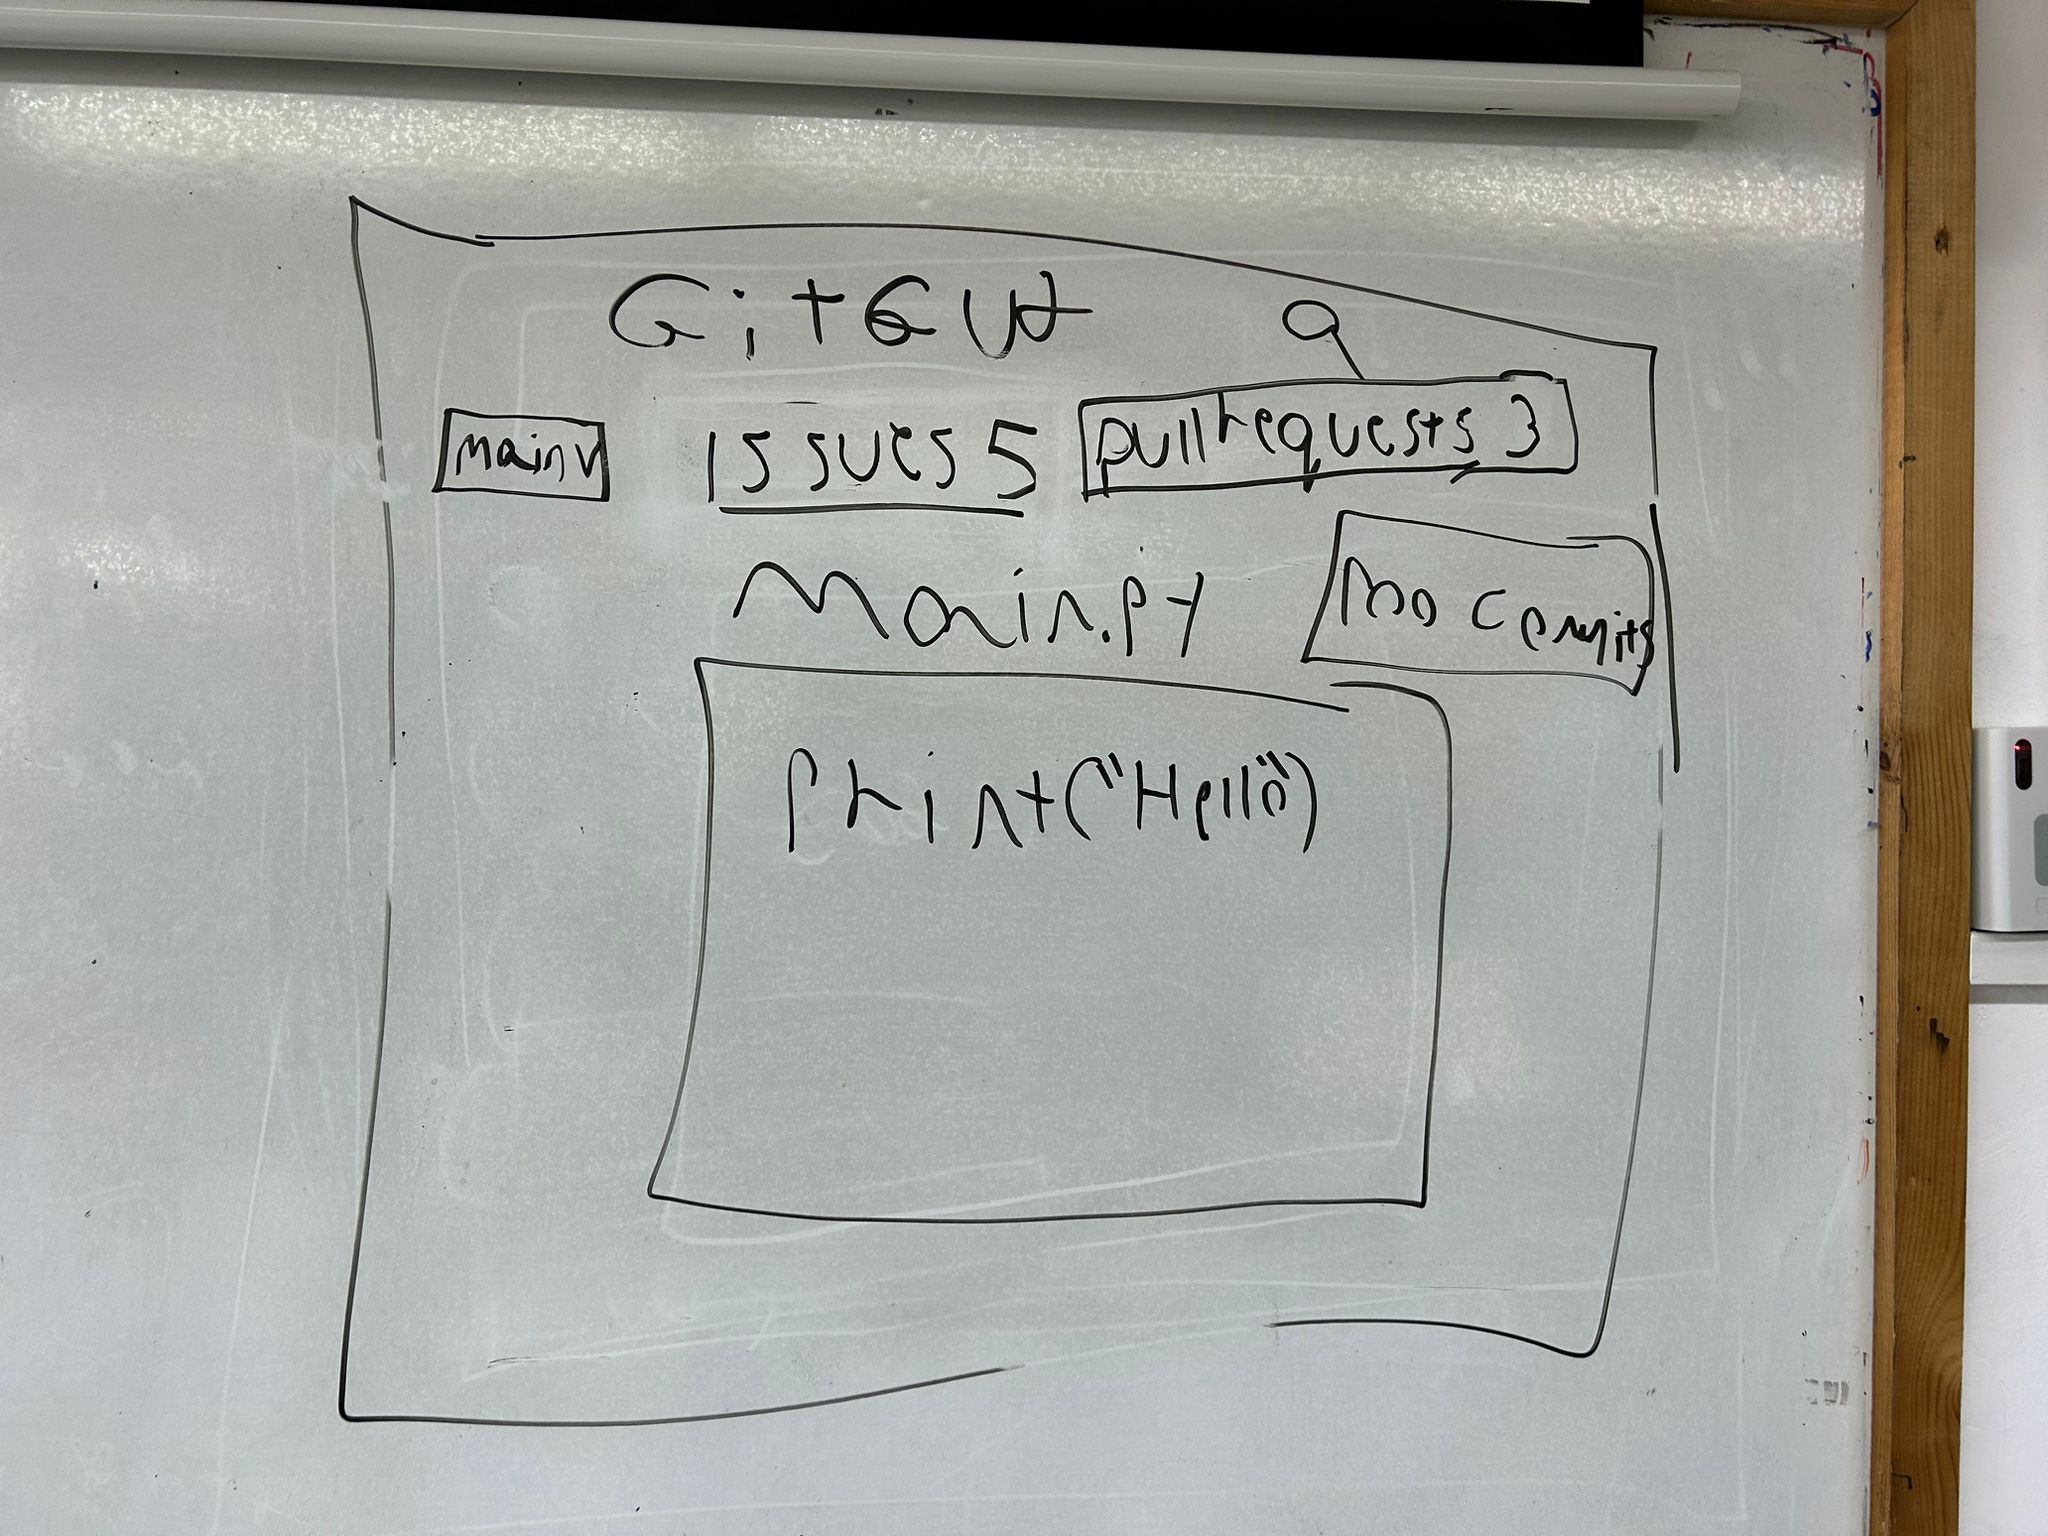 GitGut
main v
issues 5
pull requests 3
Main.py
100 commits
print("Hello")